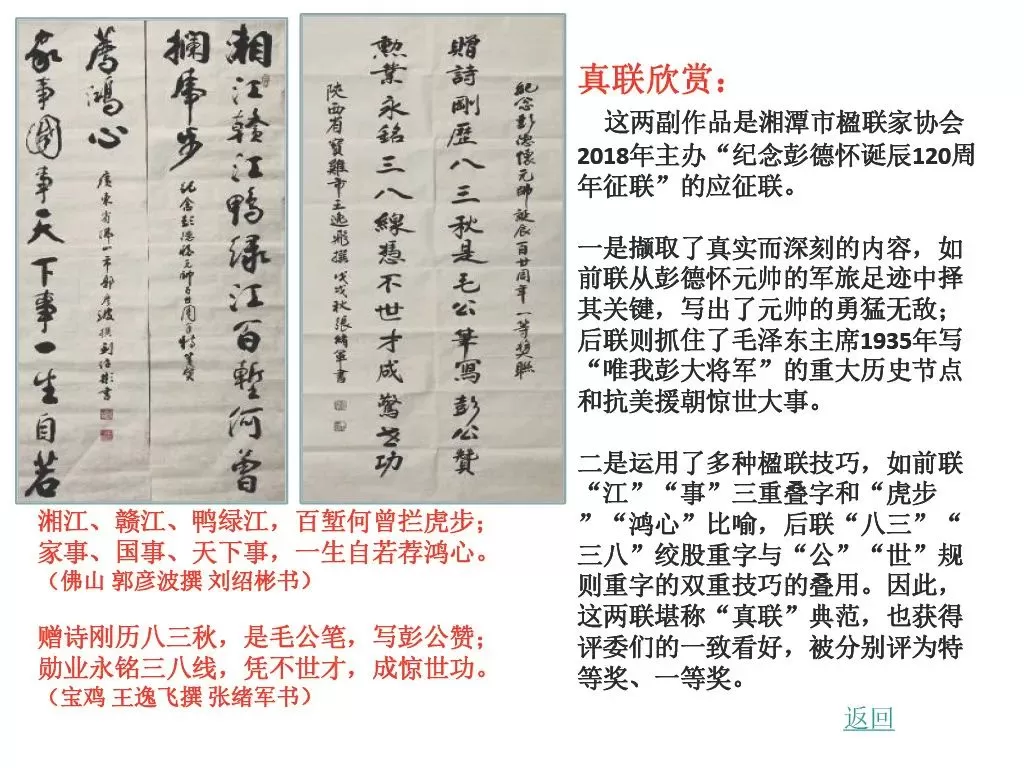 湘江赣江鸭绿江百塹何曾
攔虎步
纪念彭德懷元帥百廿周年特等奖
家事國事天下事一生自若
薦鴻心
廣東省佛山市郭彦波撰刘绍彬書
纪念彭德懷元帥誕辰百廿周年一等奬聯
贈詩剛歷八三秋是毛公筆寫彭公贊
勲業永銘三八線憑不世才成驚世功
陝西省寶雞市王逸飛撰 戊戌秋張緒軍書
湘江、赣江、鸭绿江，百堑何曾拦虎步；
家事、国事、天下事，一生自若荐鸿心。
（佛山 郭彦波撰 刘绍彬书）
赠诗刚历八三秋，是毛公笔，写彭公赞；
勋业永铭三八线，凭不世才，成惊世功。
（宝鸡 王逸飞撰 张绪军书）
真联欣赏：
这两副作品是湘潭市楹联家协会
2018年主办“纪念彭德怀诞辰120周
年征联”的应征联。
一是撷取了真实而深刻的内容，如
前联从彭德怀元帅的军旅足迹中择
其关键，写出了元帅的勇猛无敌；
后联则抓住了毛泽东主席1935年写
“唯我彭大将军”的重大历史节点
和抗美援朝惊世大事。
二是运用了多种楹联技巧，如前联
“江”“事”三重叠字和“虎步
”“鸿心”比喻，后联“八三”“
三八”绞股重字与“公”“世”规
则重字的双重技巧的叠用。因此，
这两联堪称“真联”典范，也获得
评委们的一致看好，被分别评为特
等奖、一等奖。
返回